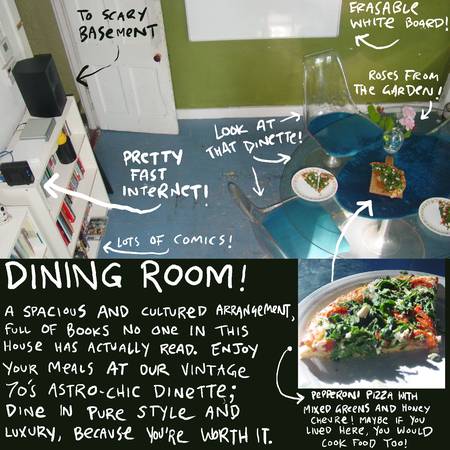 TO SCARY
BASEMENT
ERASABLE
WHITE BOARD!
ROSES FROM
THE GARDEN!
LOOK AT
THAT DINETTE!
PRETTY
FAST
INTERNET!
LOTS OF COMICS!
DINING ROOM!
A SPACIOUS AND CULTURED ARRANGEMENT,
FULL OF BOOKS NO ONE IN THIS
HOUSE HAS ACTUALLY READ. ENJOY
YOUR MEALS AT OUR VINTAGE
70'S ASTRO-CHIC DINETTE;
DINE IN PURE STYLE AND
LUXURY, BECAUSE YOU'RE WORTH IT.
PEPPERONI PIZZA WITH
MIXED GREENS AND HONEY
CHEVRE! MAYBE IF YOU
LIVED HERE, YOU WOULD
COOK FOOD TOO!